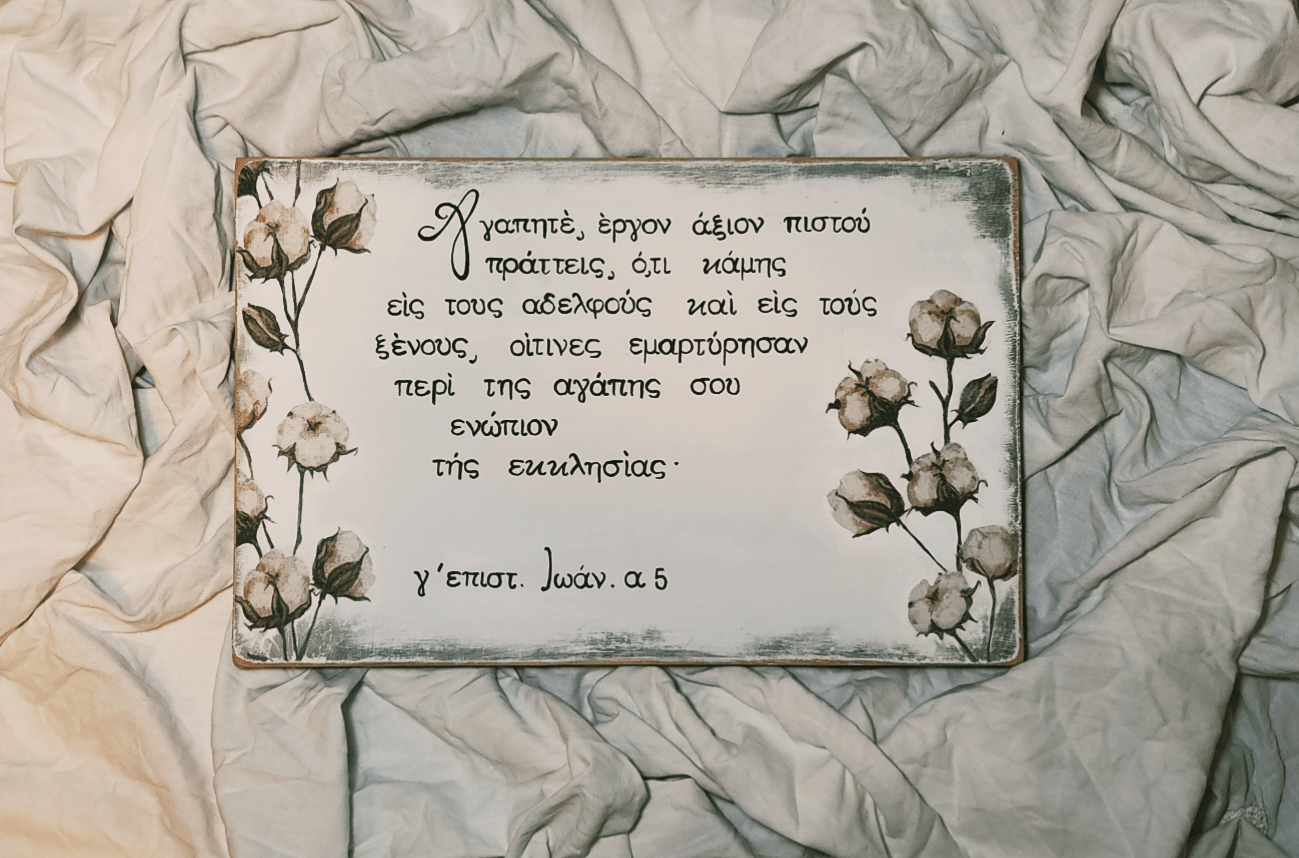 Αγαπητὲ, ὲργον άξιον πιστού
πράττεις, ό,τι κάμης
εὶς τους αδελφούς καὶ εὶς τούς
ξὲνους, οὶτινες εμαρτύρησαν
περὶ της αγάπης σου
ενώπιον
τής εκκλησὶας·
γ΄επιστ. Ιωάν. α 5